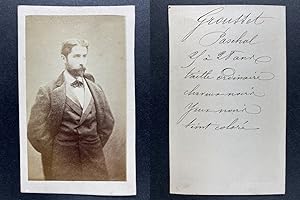 Grousset
Paschal
25 à 28 ans
taille ordinaire
cheveux noirs
yeux noirs
teint coloré